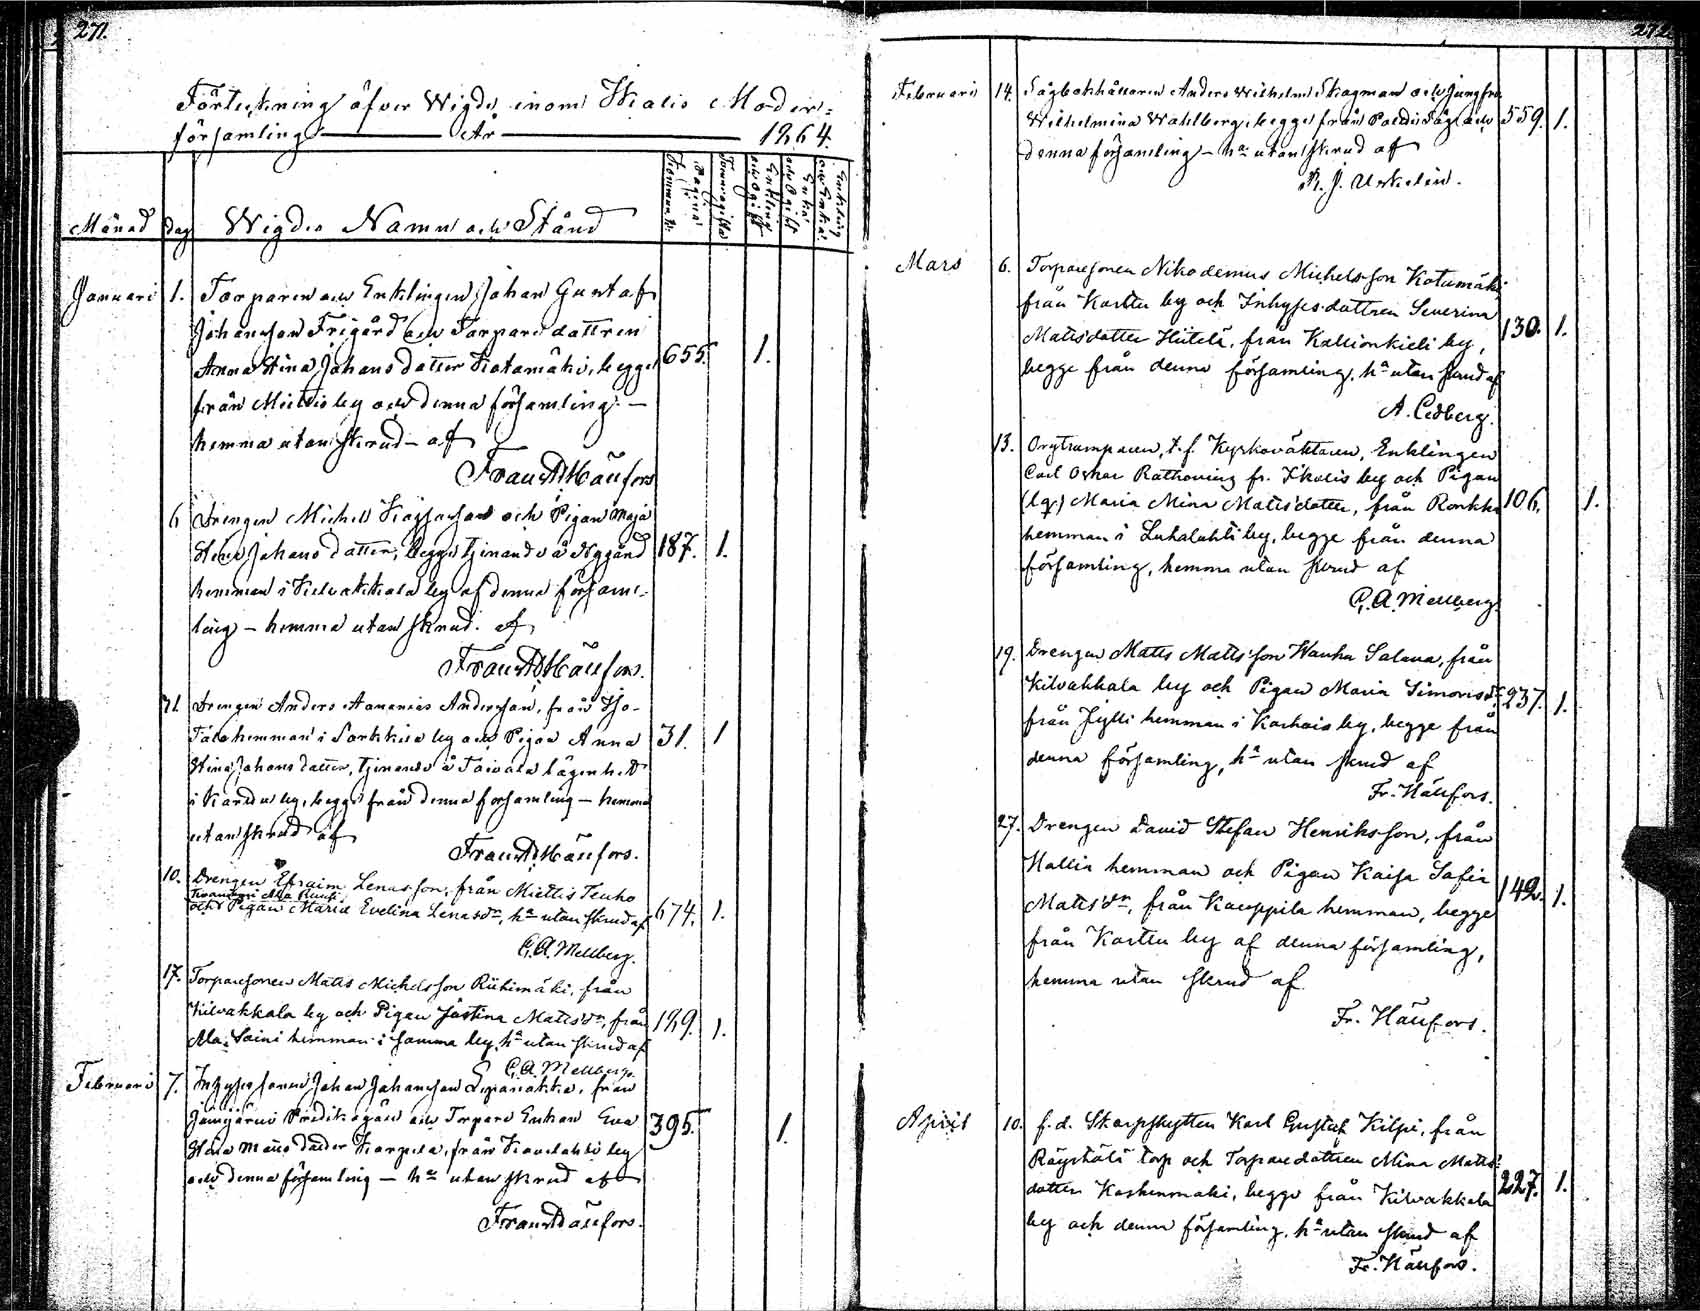 271.
Förteckning öfver Wigde inom Ikalis Moder-
församling År 1864.
Månad dag Wigdes Namn och Stånd
Januari 1. Torparen och Enklingen Johan Gustaf
Johansson Frigård och Torparedottren
Anna Stina Johansdotter Katamäki, begge 655. 1.
från Miettis by och denna församling. —
hemma utan skrud – af
Frans Häufors
6 Drengen Michel och Pigan Maja
Stina Johansdotter, begge tjenande å Nygård 187. 1.
hemman i Kilvakkala by af denna försam-
ling – hemma utan skrud. af
Frans Häufors.
Drengen Anders Ananias Andersson, från
hemman i Sarkkila by och Pigan Anna 31. 1
Stina Johansdotter, tjenande å Taivala lägenhet
i by, begge från denna församling – hemma
utan skrud af
Frans Häufors.
10. Drengen Efraim Lenasson, från Miettis Teuho
och Pigan Maria Evelina Lenasdr, ha utan skrud af 674. 1.
C. A. Mellberg.
17. Torparesonen Matts Michelsson Riihimäki, från
Kilvakkala by och Pigan Justina Mattsdr, från 189. 1.
Ala Saini hemman i samma by, ha utan skrud af
C. A. Mellberg.
Februari 7. Inhysessonen Johan Johansson från
Jämijärvi Predikogäll och Torpare Enkan Eva 395. 1.
Stina dotter Karpela, från by
och denna församling – ha utan skrud af
Frans Häufors.
272
Februari 14. Sågbokhållaren Anders Wilhelm Skogman och Jungfru
Wilhelmina Wahlberg, begge från Såg och 559. 1.
denna församling – ha utan skrud af
Mars 6. Torparesonen Nikodemus Michelsson Katumäki
från Kartu by och Inhysesdottren Severina
Mattsdotter Hiitelä, från Kallionkieli by, 130. 1.
begge från denna församling, ha utan skrud af
A. Cedberg.
13. Orgtramparen, t.f. Kyrkoväktaren, Enklingen
Carl Oskar Rathoning fr. Ikalis by och Pigan
Maria Mina Mattsdotter, från Ronkka 106. 1.
hemman i Luhalahti by, begge från denna
församling, hemma utan skrud af
C. A. Mellberg.
19. Drengen Matts Mattsson Wanha Salava, från
Kilvakkala by och Pigan Maria Simonsdr 237. 1.
från Jylli hemman i Karhois by, begge från
denna församling, ha utan skrud af
Fr. Häufors.
27. Drengen David Stefan Henriksson, från
Hallia hemman och Pigan Kaisa Sofia
Mattsdr, från Kauppila hemman, begge 142. 1.
från Kartu by af denna församling,
hemma utan skrud af
Fr. Häufors.
April 10. f.d. Skarpskytten Karl Gustaf Kilpi, från
Röyskölä torp och Torparedottren Mina Matts-
dotter Koskenmäki, begge från Kilvakkala 227. 1.
by och denna församling, ha utan skrud af
Fr. Häufors.